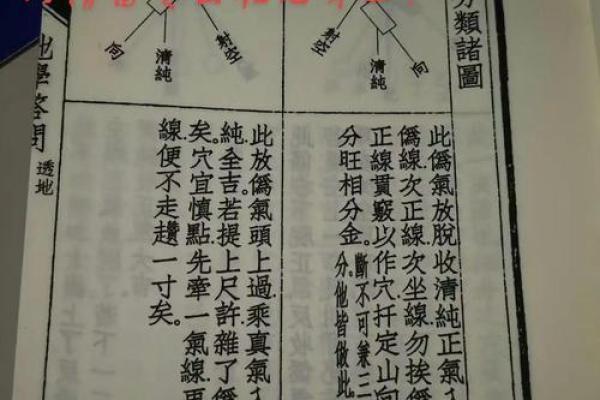 分類諸圖
向
清純
清純
向
此僞氣放脫收清純正氣
僞線次正線次坐線勿挨僞
正線貫竅以作穴扦定山向
分旺相分金。斷不可兼三
分。他皆倣此。
此放僞氣頭上過乘真氣
純全吉若提上尺許雜了僞
矣。穴宜慎點先牽一氣線
線便不走趲一寸矣。
地學答問
透地